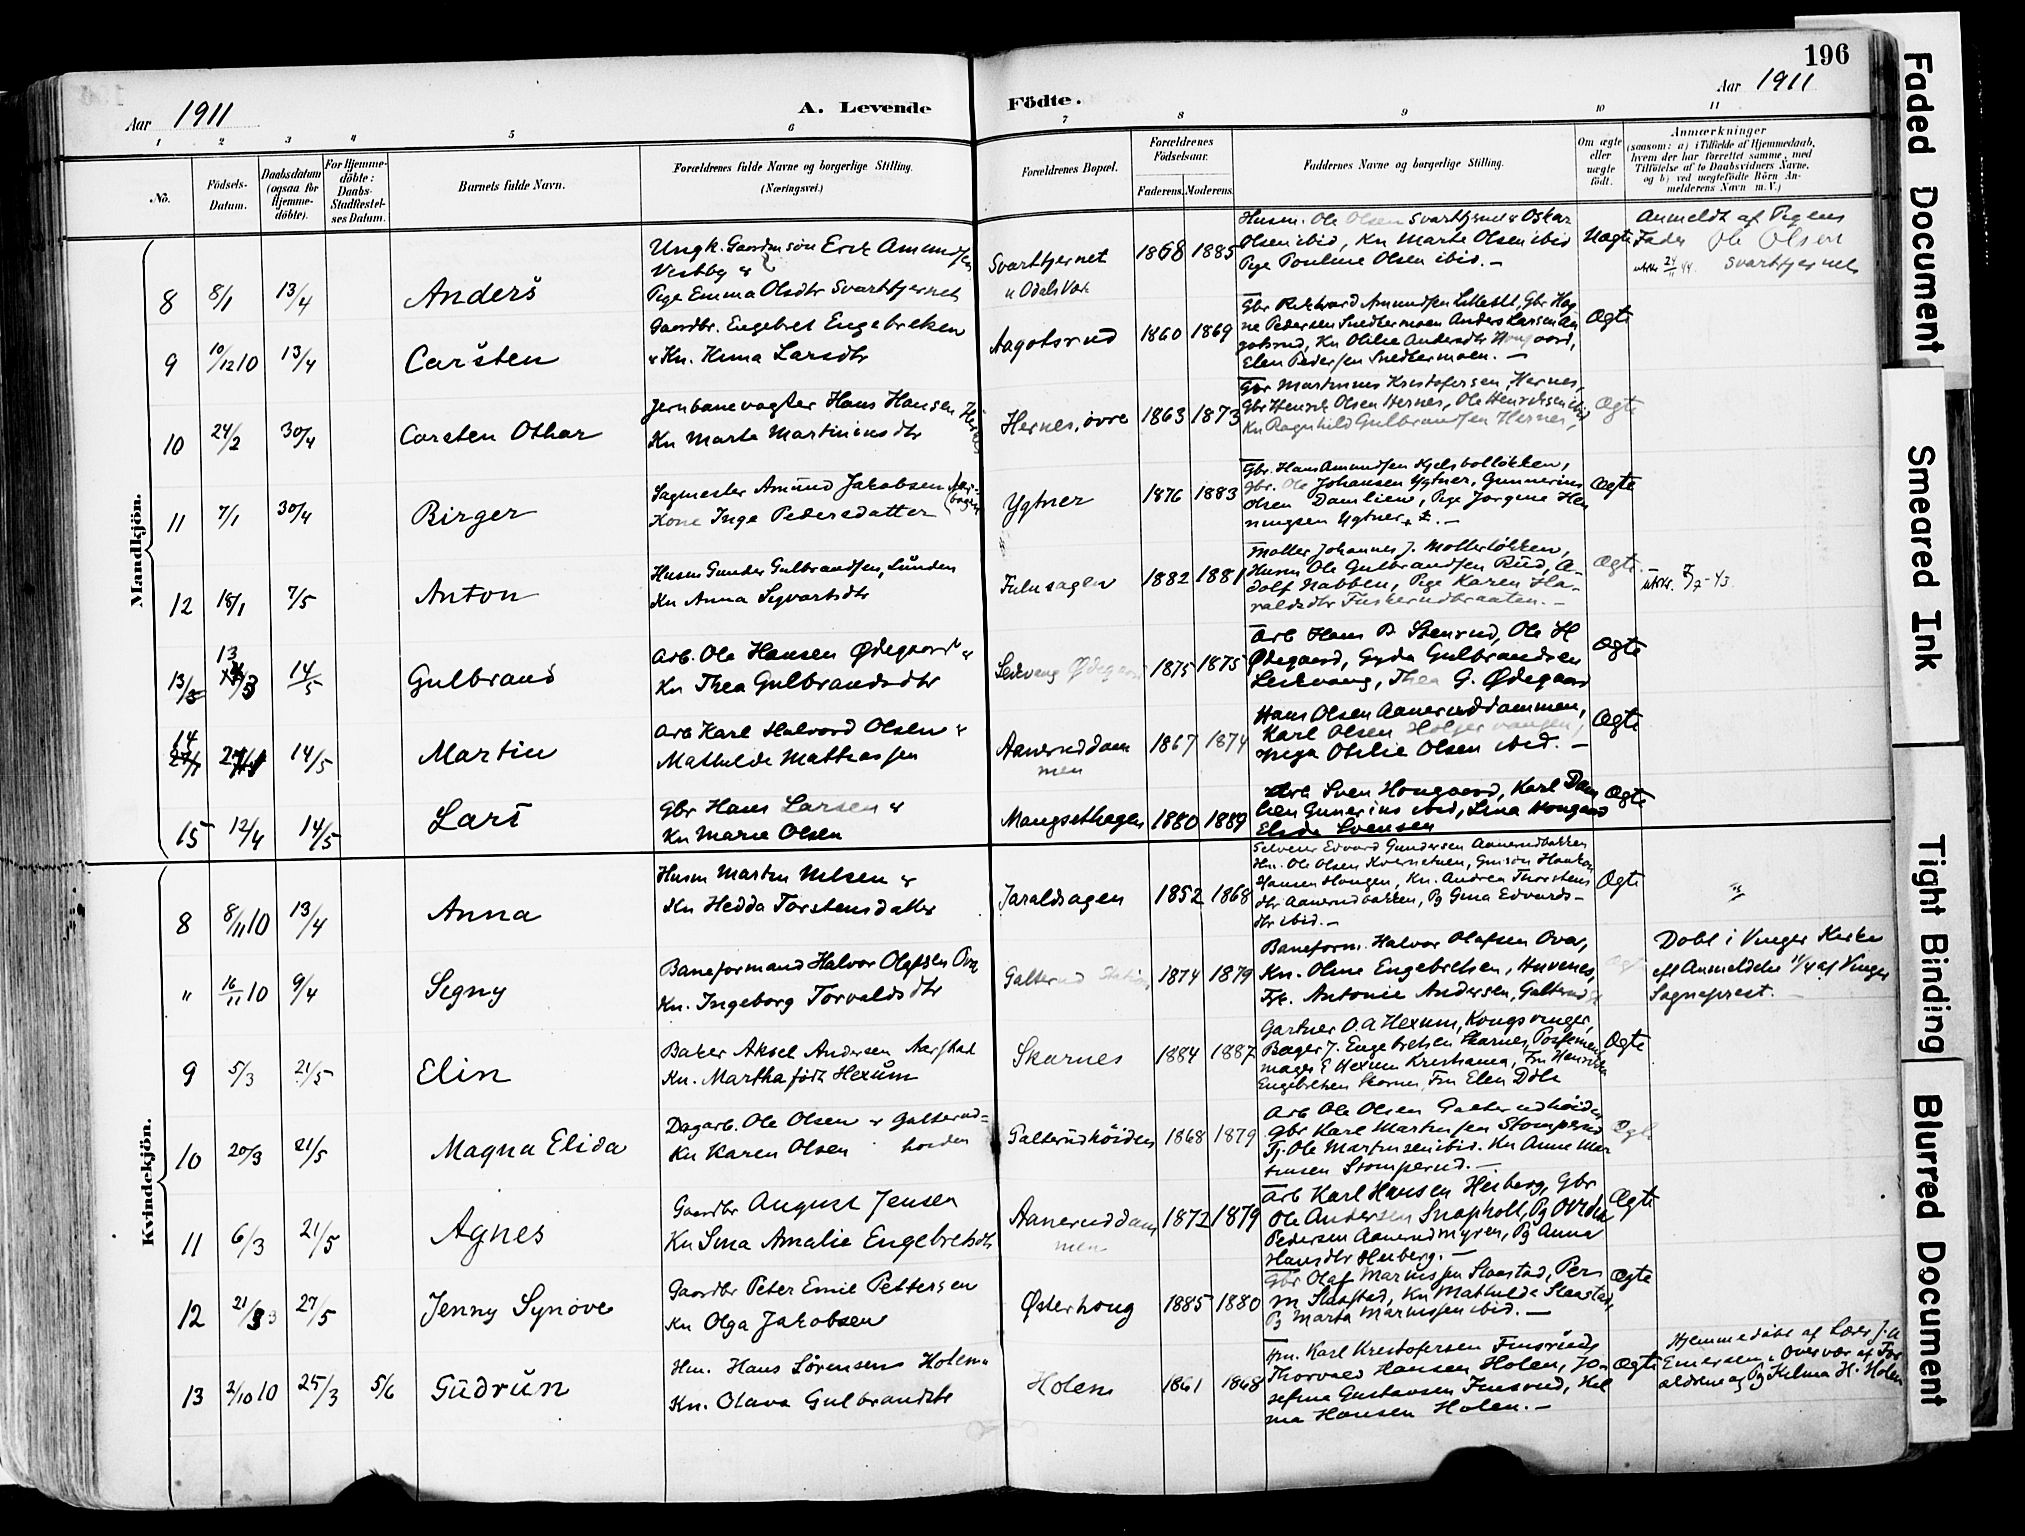 196
Aar 1911
A. Levende Födte.
Aar 1911
1 2 3 4 5 6 7 8 9 10 11
No.
Födsels-Datum.
Daabsdatum (ogsaa for Hjemme-döbte).
For Hjemme-döbte: Daabs-Stadfæstel-ses Datum.
Barnets fulde Navn.
Forældrenes fulde Navne og borgerlige Stilling.
(Næringsvei.)
Forældrenes Bopæl.
Forældrenes Födselsaar.
Faderens. Moderens.
Faddernes Navne og borgerlige Stilling.
Om ægte eller uægte födt.
Anmærkninger
(saasom: a) i Tilfælde af Hjemmedaab,
hvem der har forrettet samme, med
Tilföielse af to Daabsvidners Navne,
og b) ved uægtefödte Börn An-
melderens Navn m. V.)
Mandkjön.
8 8/1 13/4 Anders
Ungk. Gaardmsön Erik Amundsen
Vestby &
Pige Emma Olsdtr Svartkjernet
Svartkjernet
1868 1885
Husm. Ole Olsen Svartkjernet & Oskar
Olsen ibid, Kn Marte Olsen ibid
Pige Pouline Olsen ibid. —
Uægte
Anmeldt af Pigens
Fader Ole Olsen
Svartkjernet
9 10/12 10 13/4 Carsten
Gaardbr. Engebret Engebretsen
& Kn. Larsdtr
Aagotsrud
1860 1869
Ægte
10 24/2 30/4 Carsten Othar
Jernbanevogter Hans Hansen
Kn Marte Martiniusdtr
Hernes, övre
1863 1873
Gbr Martinius Kristofersen, Hernes,
Gbr Henrik Olsen Hernes, Ole Henriksen ibid
Kn Ragnhild Gulbrandsen Hernes,
Ægte
11 7/1 30/4 Birger
Sagmester Amund Jakobsen
Kone Inga Pedersdatter
Ygtner
1876 1883
Gbr. Hans Amundsen
Gbr. Ole Johansen Ygtner, Gunnerius
Olsen Damlien, Pige Jorgine Hen
ningsen Ygtner
Ægte
12 18/1 7/5 Anton
Husm Gunder Gulbrandsen, Lunden
Kn Anna Sigvartsdtr
Fulusagen
1882 1881
Møller Johannes J. Mollerløkken,
Husm Ole Gulbrandsen Rud, A-
dolf Nabben, Pige Karen Ha-
raldsdtr Fuskerudbraaten. —
Ægte.
13 14/5 Gulbrand
Arb. Ole Hansen Ødegaard &
Kn Thea Gulbrandsdtr
Ødegaard
1875 1875
Arb Hans B. Stenrud, Ole H
Ødegaard, Gyda Gulbrandsen
Leikvang, Thea G. Ødegaard
Ægte
14 14/5 Martin
Arb Karl Halvard Olsen &
Mathilde Mathiassen
Aaneruddam
men
1867 1874
Hans Olsen Aaneruddammen,
Karl Olsen
Pige Otilie Olsen ibid. —
Ægte
15 12/4 14/5 Lars
Gbr Hans Larsen &
Kn Marie Olsen
Mangsethagen
1880 1889
Arb Sven Hougaard, Karl Dam
lien Gunerius ibid, Lina Hougaard
Elida Svensen
Ægte
Kvindekjön.
8 8/11 10 13/4 Anna
Husm Martin Nilsen &
Kn Hedda Torstensdatter
Jaraldsagen
1852 1868
Selveier Edvard Gundersen Aanerudbakken
Hansen Haugen, Kn. Andrea Thorstens
dtr Aanerudbakken, Pg Gina Edvards-
dtr ibid. —
Ægte
" 16/11 10 9/4 Signy
Baneformand Halvor Olafsen Ova
Kn. Ingeborg Torvaldsdtr
Galterud Station
1874 1879
Baneform. Halvor Olafsen Ova,
Kn. Oline Engebretsen, Huvenes,
Frk. Antonie Andersen, Galterud
Döbt i Vinger Kirke
eft Anmeldelse 11/4 af Vinger
Sogneprest. —
9 5/3 21/5 Elin
Baker Aksel Andersen
Kn. Martha födt Hexum
Skarnes
1884 1887
Gartner O. A Hexum, Kongsvinger,
Bager J. Engebretsen Skarnes,
mager E Hexum Kristiania, Fru Henrikke
Engebretsen Skarnes, Fru Elen Döli
Ægte
10 20/3 21/5 Magna Elida
Dagarb. Ole Olsen & Galterud-
Kn Karen Olsen höiden
Galterudhöiden
1868 1879
Arb Ole Olsen Galterudhöiden
Gbr Karl Martinsen Stomperud
Tj. Ole Martinsen ibid. Kn Anne Mar
tinsen Stomperud. —
Ægte
11 6/3 21/5 Agnes
Gaardbr August Jensen
Kn Lina Amalie Engebretsdtr
Aaneruddam
men
1872 1879
Arb Karl Hansen Heiberg, Gbr
Ole Andersen Snapholt, Pg
Pedersen Aanerudmyren, Pg Anna
Hansdtr Heiberg. —
Ægte
12 21/3 27/5 Jenny Synöve
Gaardbr Peter Emil Pettersen
Kn Olga Jakobsen
Østerhaug
1885 1880
Gbr Olaf Mariussen Slaastad, Per
M Slaastad, Kn Mathilde Slaastad,
Pg Marta Mariussen ibid. —
Ægte
13 2/10 10 25/3 5/6 Gudrun
Hm. Hans Sörensen Holen &
Kn. Olava Gulbrandsdtr
Holen
1861 1868
Hm. Karl Kristofersen Finsrud,
Thorvald Hansen Holen, Jo-
sefine Gustavsen Finsrud, Hil
ma Hansen Holen. —
Ægte
Hjemmedöbt af Lærer J. A
Emersen. Overvær af For
ældrene og Pg Hilma H. Holen
Faded Document
Smeared Ink
Tight Binding
Blurred Document